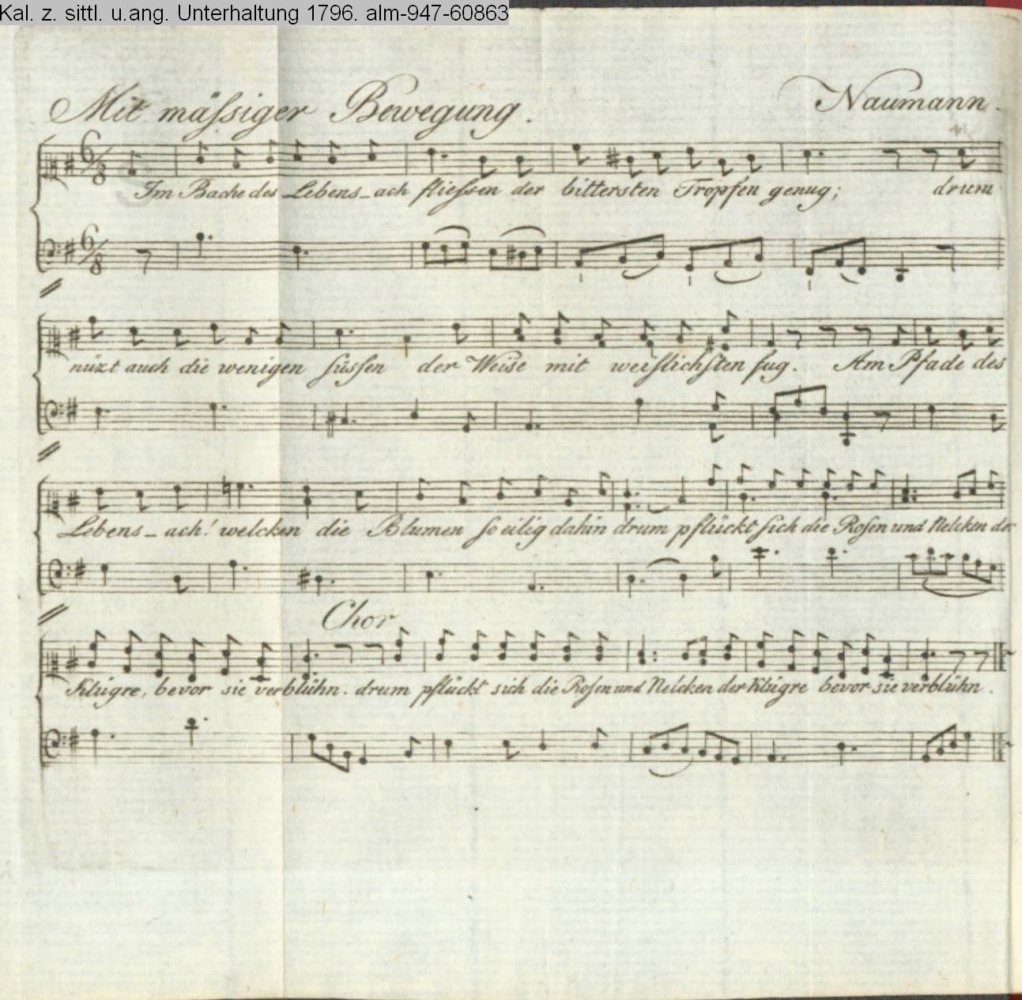 Kal. z. sittl. u.ang. Unterhaltung 1796. alm-947-60863
Mit mäſsiger Bewegung. Naumann.
6/8
Im Bache des Lebens_ach flieſsen der bittersten Tropfen genug; drum
6/8
nüzt auch die wenigen süſsen der Weise mit weiſlichſten fug. Am Pfade des
Lebens_ach! welcken die Blumen ſo eilig dahin drum pflückt ſich die Roſen und Nelcken der
Chor
Klügre, bevor sie verblühn. drum pflückt sich die Roſen und Nelcken der Klügre bevor sie verblühn.